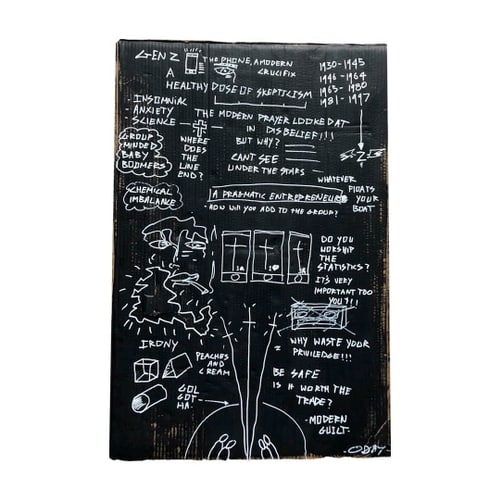 GEN Z
THE PHONE, A MODERN
CRUCIFIX
A
HEALTHY DOSE OF SKEPTICISM
1930-1945
1946-1964
1965-1980
1981-1997
- INSOMNIAC
- ANXIETY
SCIENCE
THE MODERN PRAYER LOOKED AT
IN DISBELIEF!!!
BUT WHY?
GROUP
MINDED
BABY
BOOMERS
WHERE
DOES
THE
LINE
END?
CANT SEE
UNDER THE STARS
Z
WHATEVER
FLOATS
YOUR
BOAT
CHEMICAL
IMBALANCE
A PRAGMATIC ENTREPRENEUR
HOW WILL YOU ADD TO THE GROUP?
DO YOU
WORSHIP
THE
STATISTICS?
IT'S VERY
IMPORTANT TOO
YOU?!!!
IRONY
PEACHES
AND
CREAM
GOL
GOT
HA.
WHY WASTE YOUR
PRIVILEDGE!!!
BE SAFE
IS IT WORTH THE
TRADE?
-MODERN
GUILT-